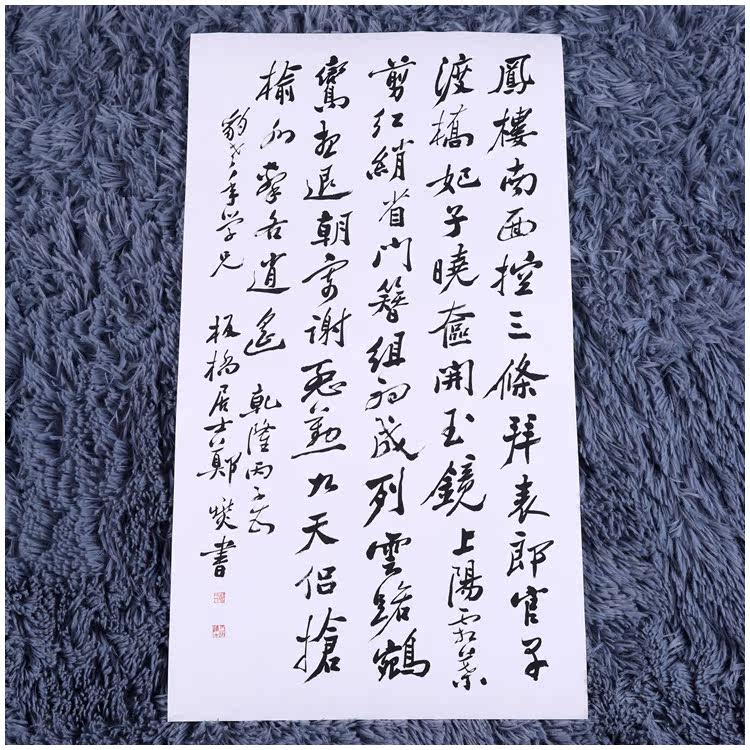 鳳樓南面控三條拜表郎官早
渡橋妃子曉奩開玉鏡上陽霜葉
剪紅綃省門簪組初成列雲路鵷
鸞想退朝寄謝慇懃九天侶搶
榆水擊各逍遙 乾隆丙子
老年學兄 板橋居士鄭燮書